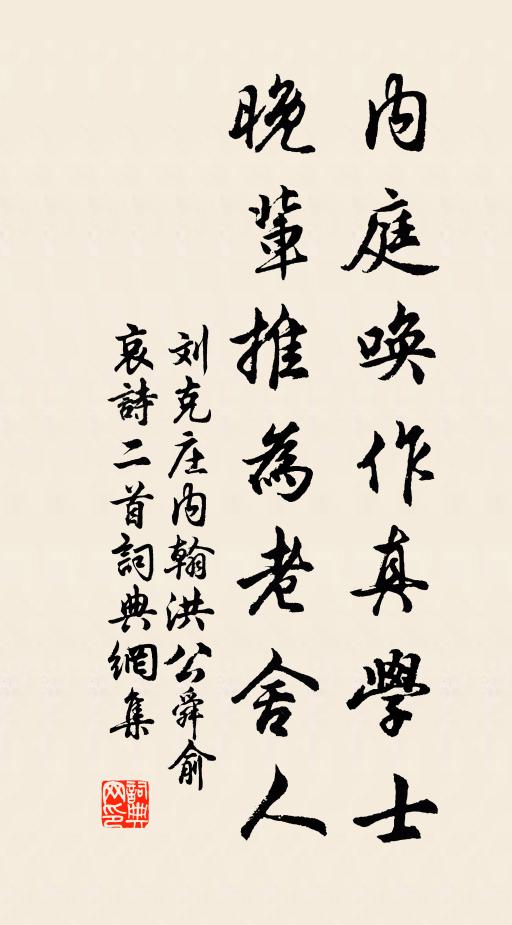 内庭唤作真學士
晚輩推為老舍人
刘克庄内翰洪公舜俞
哀詩二首詞典網集
詞典
网印